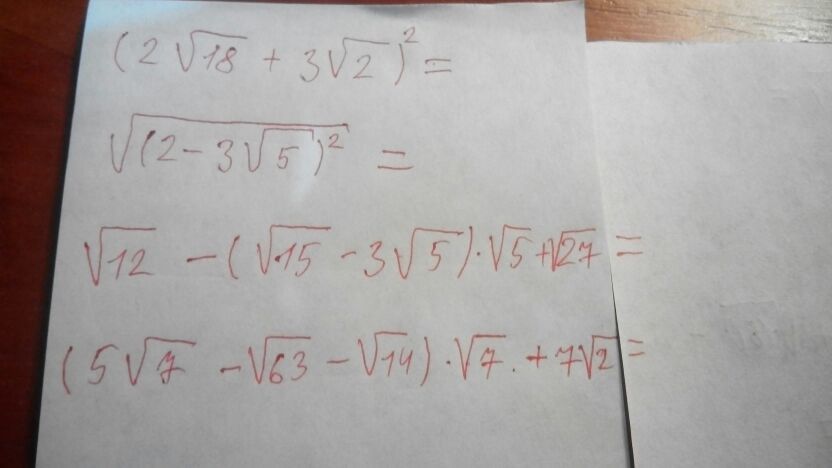 (2√18 + 3√2)² =
√(2 - 3√5)² =
√12 - (√15 - 3√5)·√5 + √27 =
(5√7 - √63 - √14)·√7 + 7√2 =